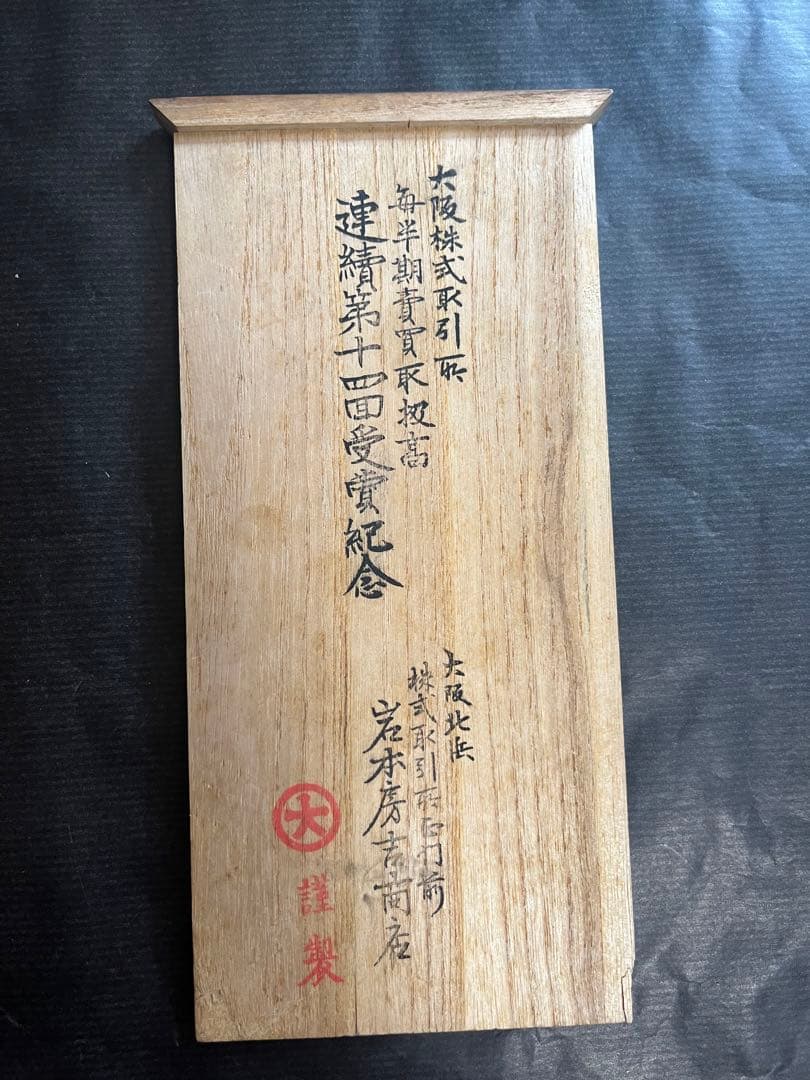 大阪株式取引所
每半期賣買取扱高
連續第十四回受賞紀念
大阪北浜
株式取引所正門前
岩本房吉商店
大
謹製